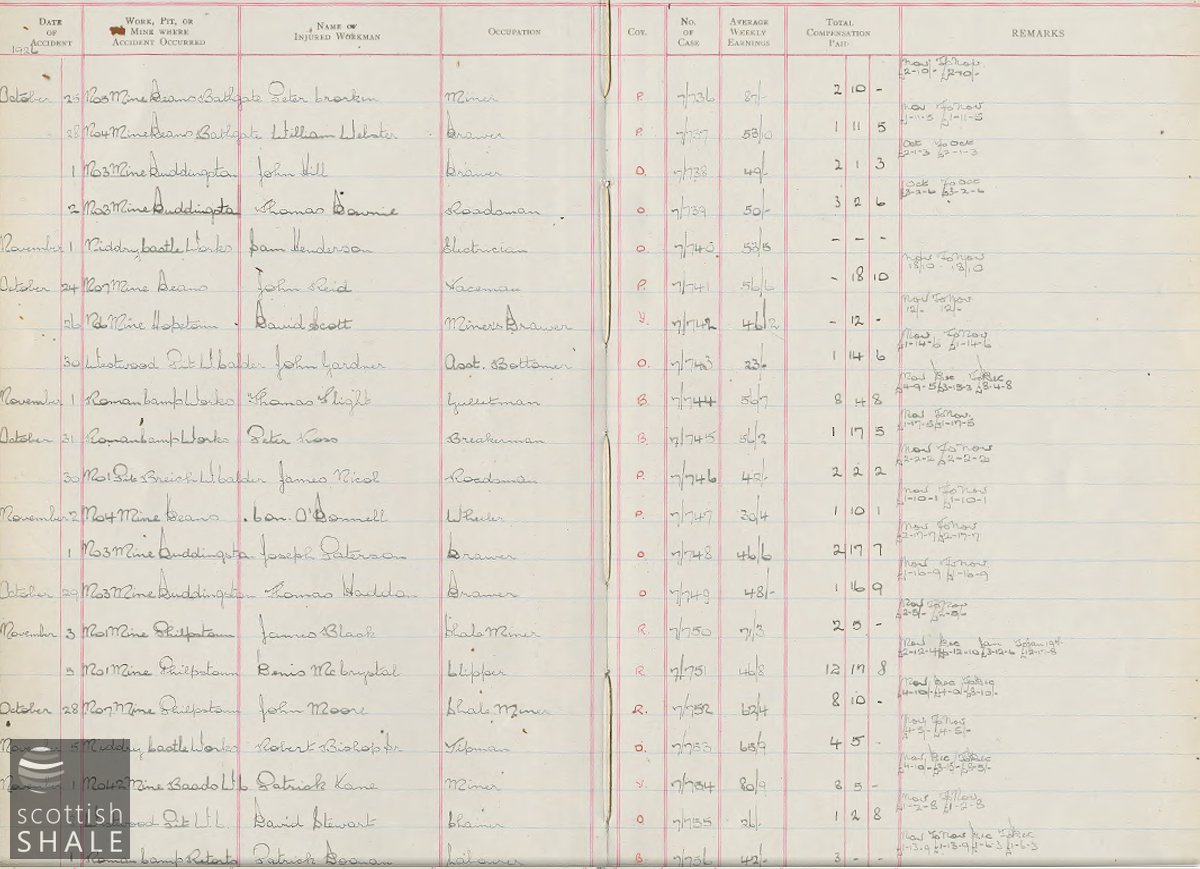 DATE OF ACCIDENT WORK, PIT, OR MINE WHERE ACCIDENT OCCURRED NAME OF INJURED WORKMAN OCCUPATION COY. NO. OF CASE AVERAGE WEEKLY EARNINGS TOTAL COMPENSATION PAID REMARKS
1926
Nov To Nov
£2-10/- £2-10/-
October 25 No5 Mine Deans Bathgate Peter Miner P. 7/736 87/- 2 10 -
Nov To Nov
£1-11-5 £1-11-5
28 No4 Mine Deans Bathgate William Webster Drawer P. 7/737 53/10 1 11 5
Oct To Oct
£2-1-3 £2-1-3
1 No3 Mine Duddingston John Hill Drawer O. 7/738 49/- 2 1 3
Oct To Oct
£3-2-6 £3-2-6
2 No3 Mine Duddingsta Thomas Downie Roadsman O 7/739 50/- 3 2 6
November 1 Niddry Castle Works Sam Henderson Electrician O 7/740 53/5 - - -
Nov To Nov
18/10 - 18/10
October 24 No7 Mine Deans John Reid Faceman P. 7/741 56/6 - 18 10
Nov To Nov
12/- 12/-
26 No6 Mine Hopetoun David Scott Miners Drawer Y. 7/742 46/2 - 12 -
Nov To Nov
£1-14-6 £1-14-6
30 Westwood Pit W Calder John Gardner Asst. Bottomer O. 7/743 23/6 1 14 6
Nov Dec To Dec
£4-9-5 £3-15-3 £8-4-8
November 1 Roman Camp Works Thomas Flight Gulletman B. 7/744 59/7 8 4 8
Nov To Nov
£1-17-5 £1-17-5
October 31 Roman Camp Works Peter Ross Breakerman B. 7/745 56/2 1 17 5
Nov To Nov
£2-2-2 £2-2-2
30 No1 Pit Breich W Calder James Nicol Roadsman P. 7/746 42/- 2 2 2
Nov To Nov
£1-10-1 £1-10-1
November 2 No4 Mine Deans Con. O'Donnell Wheeler P. 7/747 30/4 1 10 1
Nov To Nov
£2-17-7 £2-17-7
1 No3 Mine Duddingsta Joseph Paterson Drawer O 7/748 46/6 2 17 7
Nov To Nov
£1-16-9 £1-16-9
October 29 No3 Mine Duddingston Thomas Haddow Drawer O 7/749 48/- 1 16 9
Nov To Nov
£2-5/- £2-5/-
November 3 No1 Mine Philpstoun James Black Shale Miner R. 7/750 71/3 2 5 -
Nov Dec Jan To Jan
5 No1 Mine Philpstoun Denis McCrystal Clipper R 7/751 46/8 12 17 8
Nov Dec To Dec
October 28 No7 Mine Philpstoun John Moore Shale Miner R. 7/752 62/4 8 10 -
Nov To Nov
£4-5/- £4-5/-
November 5 Niddry Castle Works Robert Bishop Jr Tipman O. 7/753 65/9 4 5 -
Nov Dec To Dec
November 1 No42 Mine Baads W C Patrick Kane Miner Y. 7/754 80/9 8 5 -
Nov To Nov
£1-2-8 £1-2-8
Westwood Pit W.C. David Stewart Chainer O 7/755 26/- 1 2 8
Nov To Nov Dec To Dec
£1-13-9 £1-13-9 £1-6-3 £1-6-3
1 Roman Camp Retorts Patrick Labourer B. 7/756 42/- 3 - -
scottish
SHALE